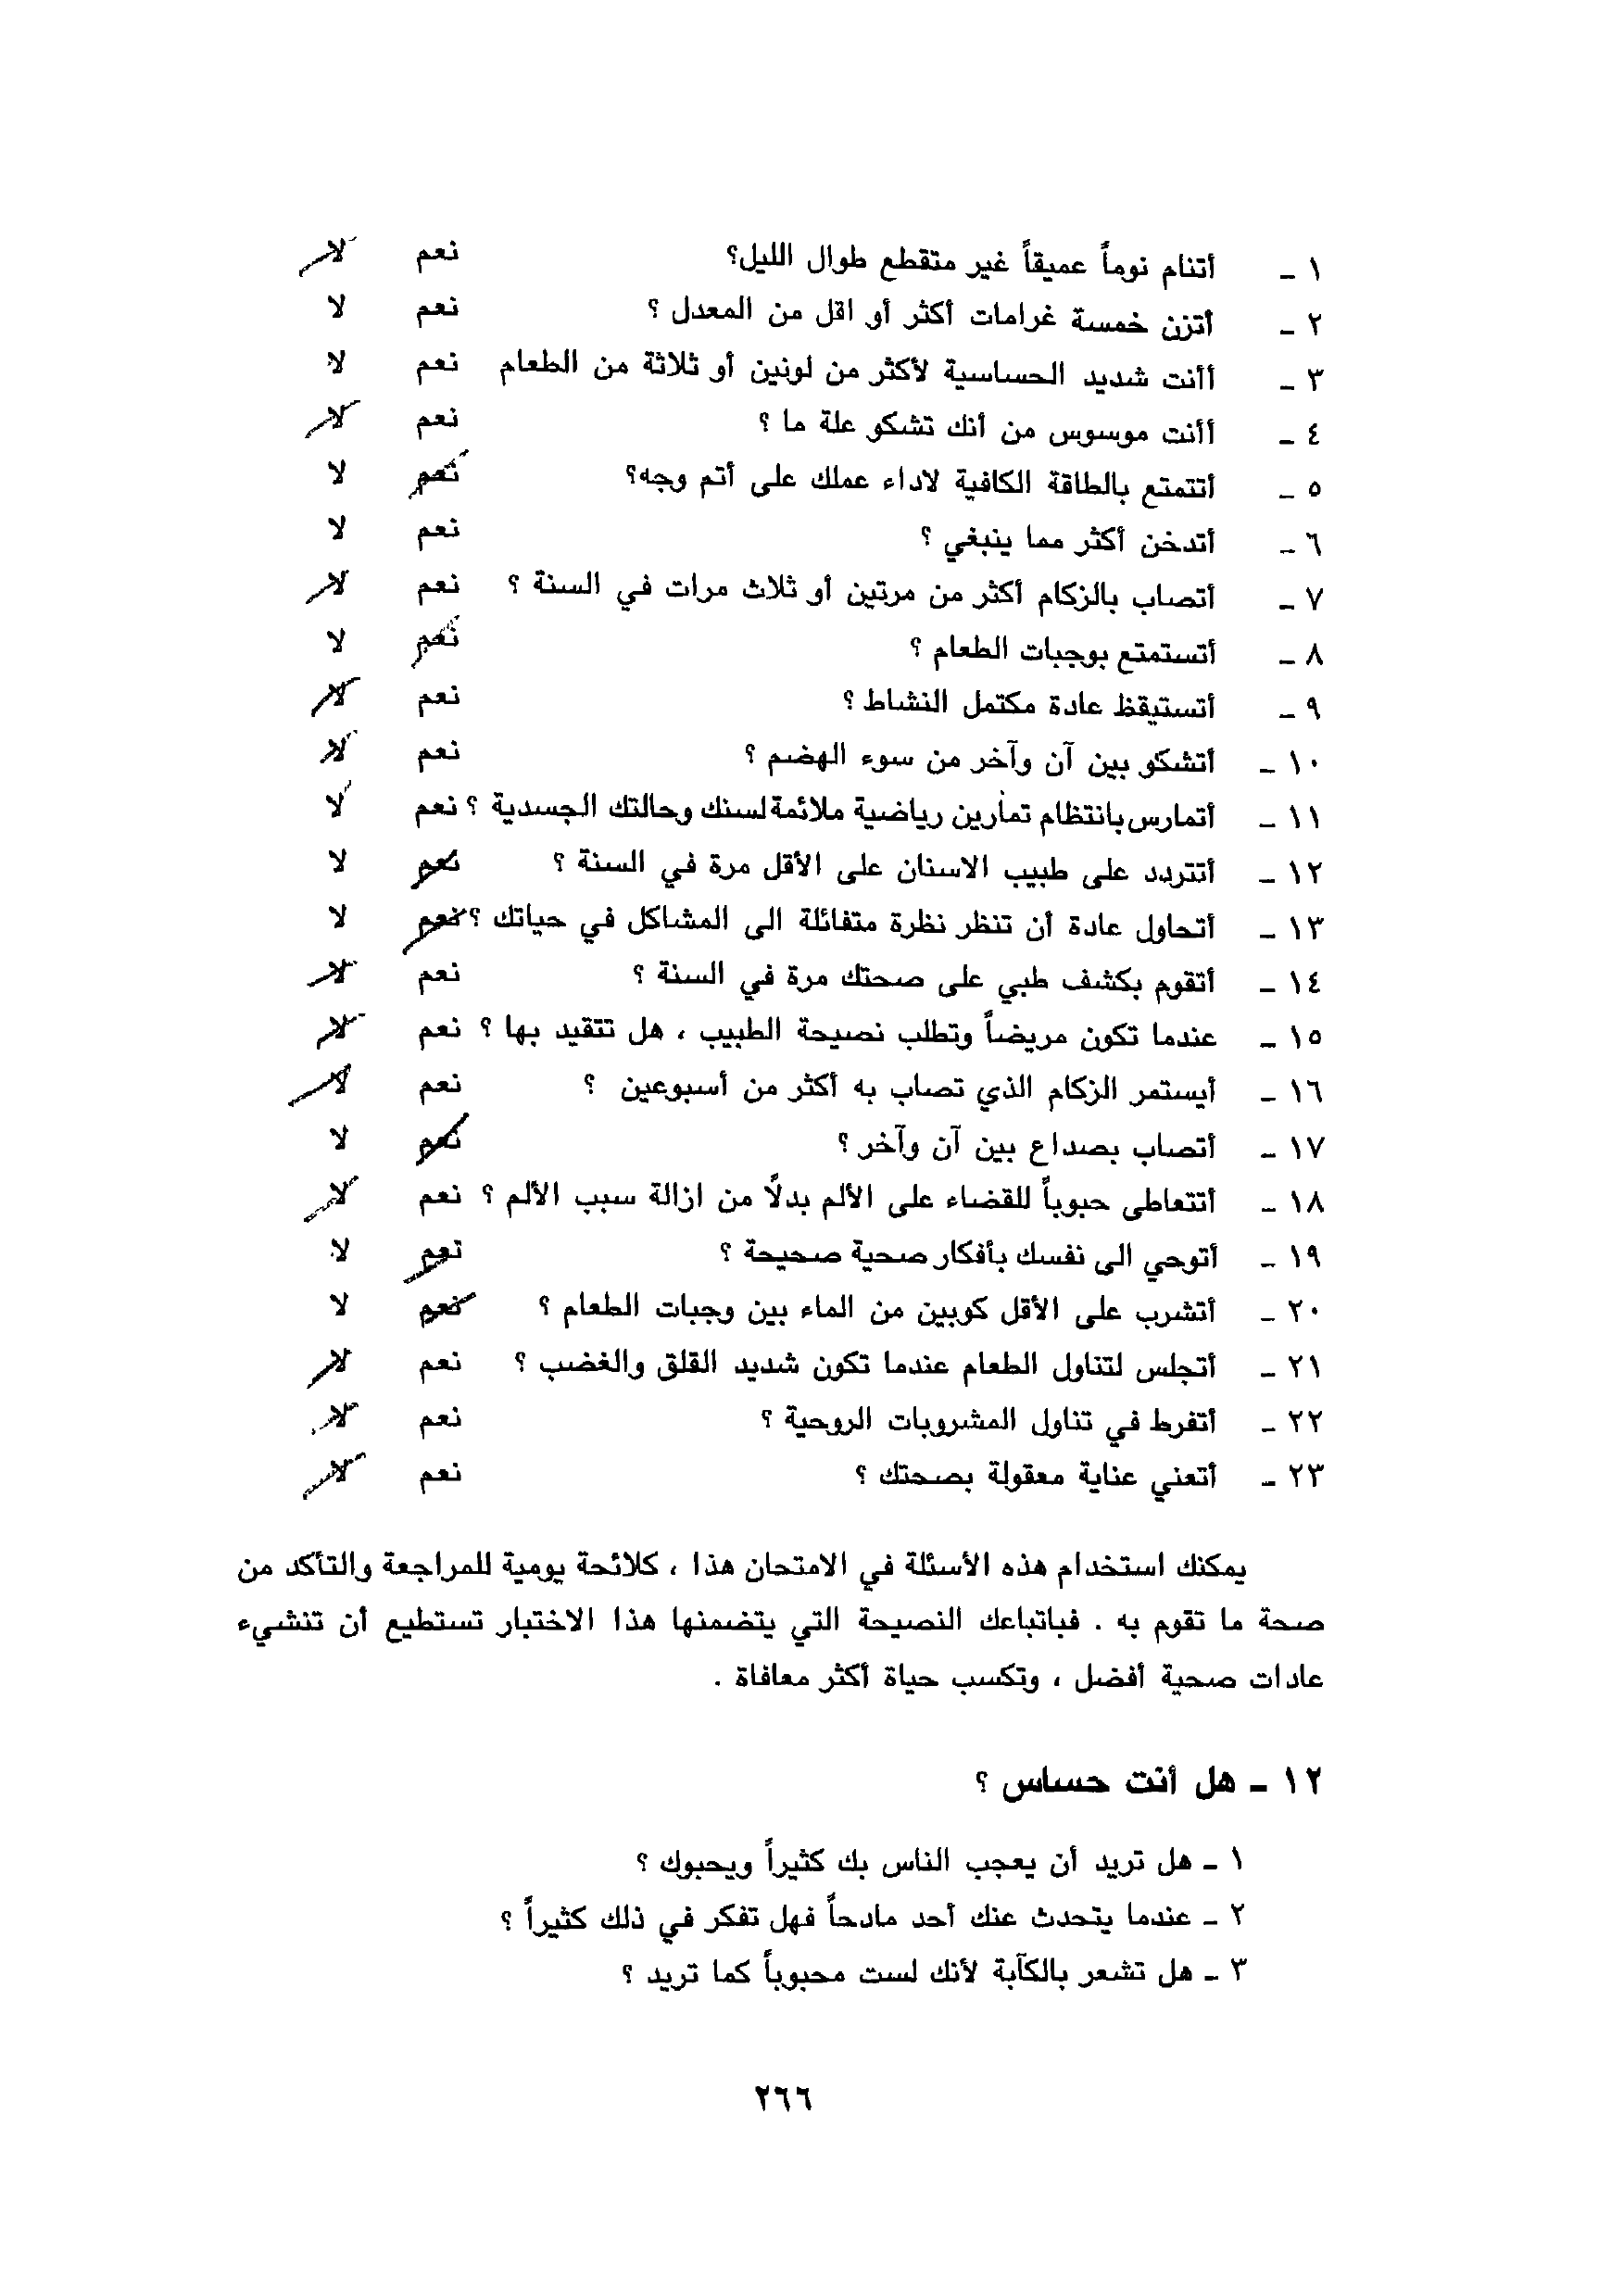 ١ - أتنام نوماً عميقاً غير متقطع طوال الليل؟ نعم لا
٢ - أتزن خمسة غرامات أكثر أو اقل من المعدل ؟ نعم لا
٣ - أأنت شديد الحساسية لأكثر من لونين أو ثلاثة من الطعام نعم لا
٤ - أأنت موسوس من أنك تشكو علة ما ؟ نعم لا
٥ - أتتمتع بالطاقة الكافية لاداء عملك على أتم وجه؟ نعم لا
٦ - أتدخن أكثر مما ينبغي ؟ نعم لا
٧ - أتصاب بالزكام أكثر من مرتين أو ثلاث مرات في السنة ؟ نعم لا
٨ - أتستمتع بوجبات الطعام ؟ نعم لا
٩ - أتستيقظ عادة مكتمل النشاط ؟ نعم لا
١٠ - أتشكو بين آن وآخر من سوء الهضم ؟ نعم لا
١١ - أتمارس بانتظام تمارين رياضية ملائمة لسنك وحالتك الجسدية ؟ نعم لا
١٢ - أتتردد على طبيب الاسنان على الأقل مرة في السنة ؟ نعم لا
١٣ - أتحاول عادة أن تنظر نظرة متفائلة الى المشاكل في حياتك ؟ نعم لا
١٤ - أتقوم بكشف طبي على صحتك مرة في السنة ؟ نعم لا
١٥ - عندما تكون مريضاً وتطلب نصيحة الطبيب ، هل تتقيد بها ؟ نعم لا
١٦ - أيستمر الزكام الذي تصاب به أكثر من أسبوعين ؟ نعم لا
١٧ - أتصاب بصداع بين آن وآخر ؟ نعم لا
١٨ - أتتعاطى حبوباً للقضاء على الألم بدلًا من ازالة سبب الألم ؟ نعم لا
١٩ - أتوحي الى نفسك بأفكار صحية صحيحة ؟ نعم لا
٢٠ - أتشرب على الأقل كوبين من الماء بين وجبات الطعام ؟ نعم لا
٢١ - أتجلس لتناول الطعام عندما تكون شديد القلق والغضب ؟ نعم لا
٢٢ - أتفرط في تناول المشروبات الروحية ؟ نعم لا
٢٣ - أتعني عناية معقولة بصحتك ؟ نعم لا
يمكنك استخدام هذه الأسئلة في الامتحان هذا ، كلائحة يومية للمراجعة والتأكد من
صحة ما تقوم به . فباتباعك النصيحة التي يتضمنها هذا الاختبار تستطيع أن تنشيء
عادات صحية أفضل ، وتكسب حياة أكثر معافاة .
١٢ - هل أنت حساس ؟
١ - هل تريد أن يعجب الناس بك كثيراً ويحبوك ؟
٢ - عندما يتحدث عنك أحد مادحاً فهل تفكر في ذلك كثيراً ؟
٣ - هل تشعر بالكآبة لأنك لست محبوباً كما تريد ؟
٢٦٦